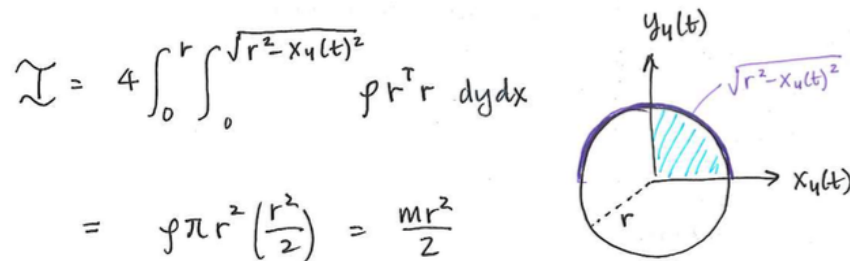 I = 4 ∫₀^r ∫₀^√(r² − x₄(t)²) ρ rᵀ r dy dx
= ρπr² (r²/2) = mr²/2
y₄(t)
√(r² − x₄(t)²)
x₄(t)
r